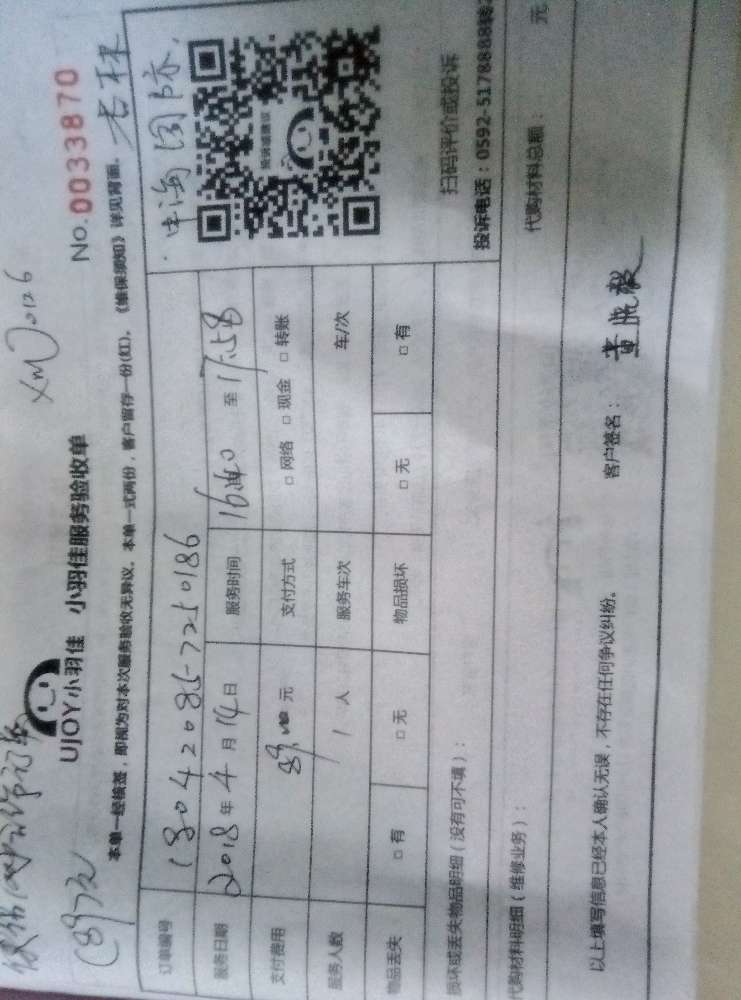 (89元
XM0126
UJOY小羽佳 小羽佳服务验收单
No.0033870
本单一经核签，即视为对本次服务验收无异议。本单一式两份，客户留存一份(红)。《维保须知》详见背面。
杏林
订单编号 18042085-7250186
中海国际
服务日期 2018年4月14日 服务时间 16:40 至 17:58
支付费用 89 元 支付方式 □ 网络 □ 现金 □ 转账
服务人数 1 人 服务车次 车/次
物品丢失 □ 有 □ 无 物品损坏 □ 无 □ 有
扫码评价或投诉
投诉电话：0592-5178888转
损坏或丢失物品明细（没有可不填）：
代购材料明细（维修业务）： 代购材料总额： 元
以上填写信息已经本人确认无误，不存在任何争议纠纷。 客户签名：